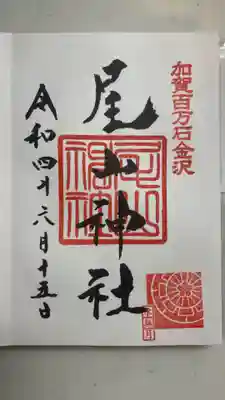 加賀百万石金沢
尾山神社
令和四年六月十五日